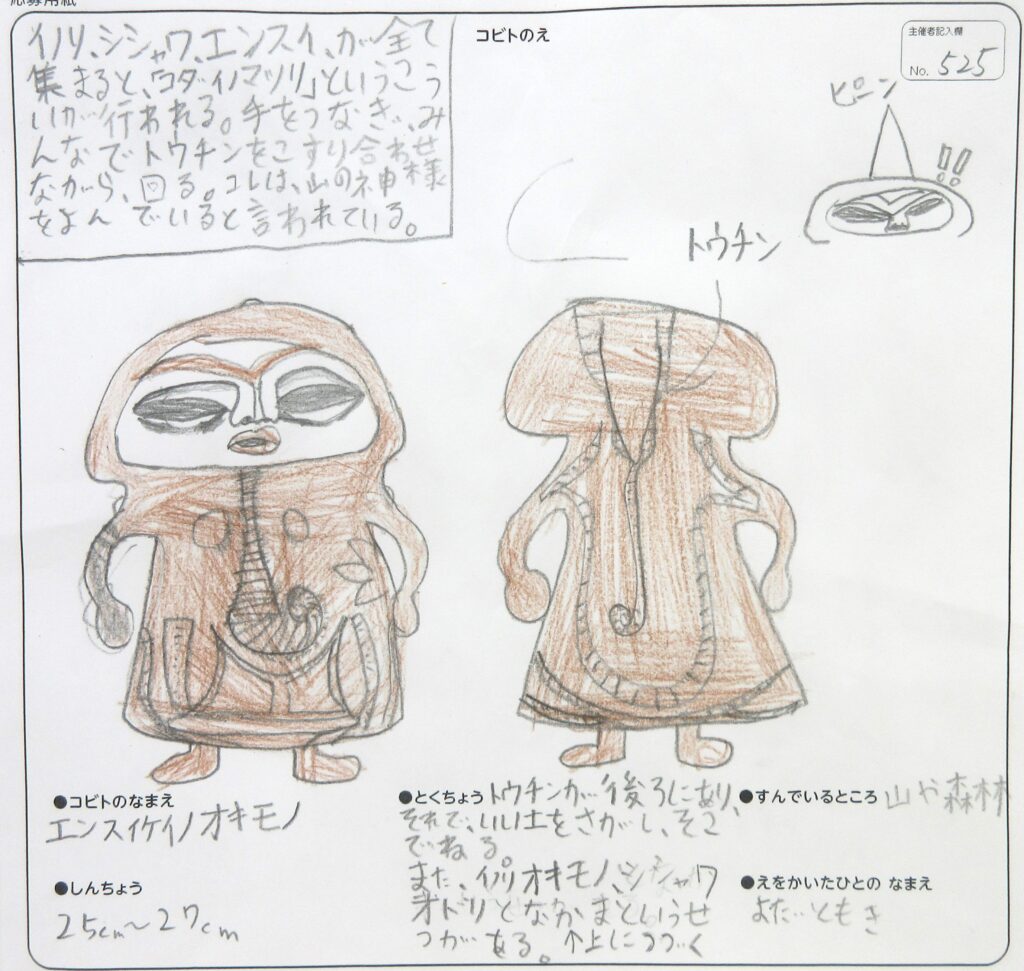 応募用紙
イノリ、シシャワ、エンスイ、が全て
集まると、「コダイノマツリ」というこう
いが行われる。手をつなぎ、み
んなでトウチンをこすり合わせ
ながら、回る。コレは、山の神様
をよんでいると言われている。
コビトのえ
主催者記入欄
No. 525
ピーン
!!
トウチン
●コビトのなまえ
エンスイケイノオキモノ
●しんちょう
25cm〜27cm
●とくちょう トウチンが後ろにあり、
それで、いい土をさがし、そこ
でねる。
また、イノリオキモノ、シシャワ
オドリとなかまというせ
つがある。↑上につづく
●すんでいるところ 山や森林
●えをかいたひとの なまえ
よだ ともき